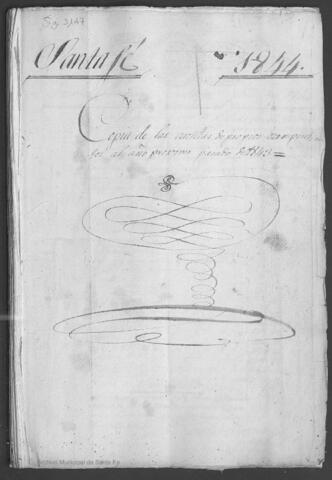 Sg 3,147
Santafé 1844.
Copia de las cuentas de propios correspondien
tes al año proximo pasado de 1843=
Archivo Municipal de Santa Fe